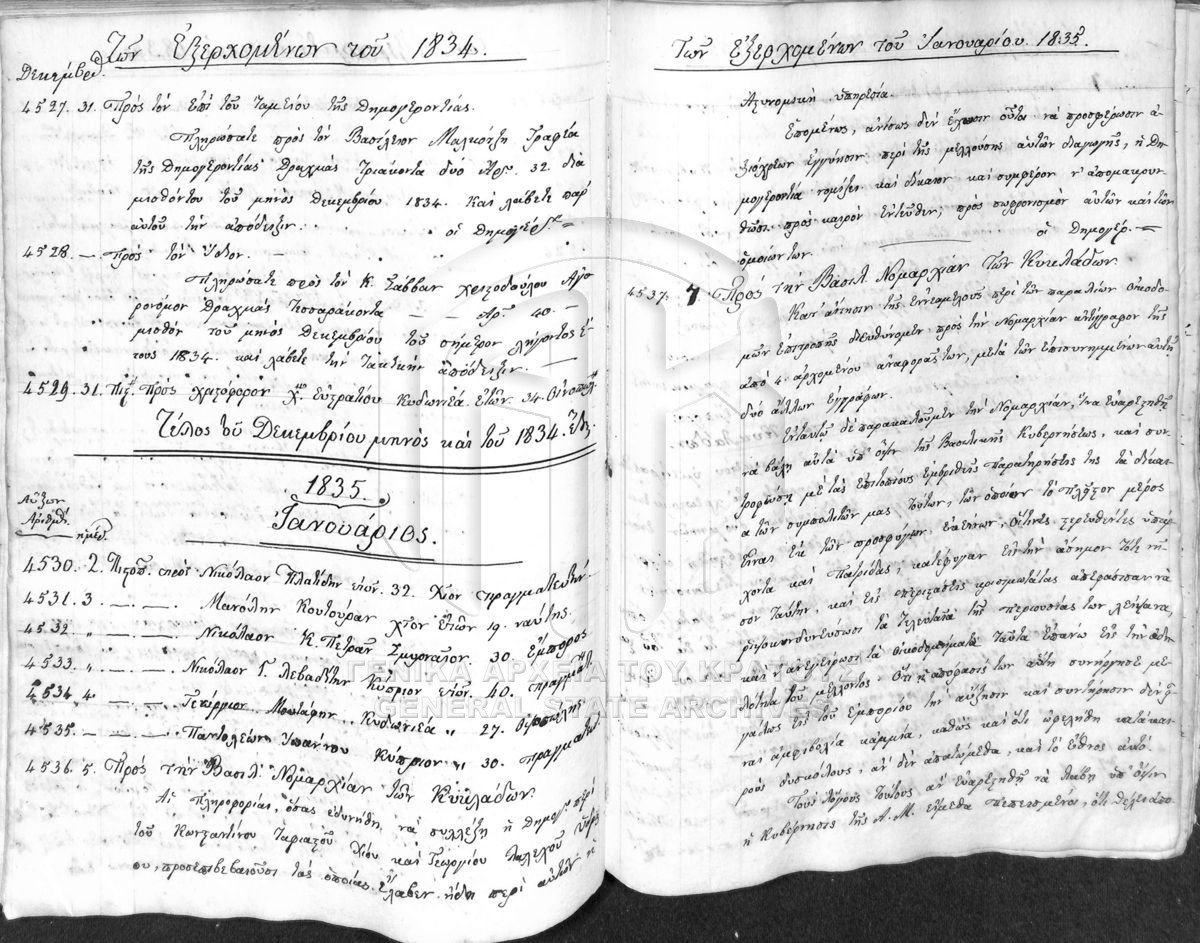 Τῶν Ἐξερχομένων τοῦ 1834.
Δεκέμβρ.
4527. 31. Πρὸς τὸν Ἐπὶ τοῦ Ταμείου τῆς Δημογεροντίας.
Πληρώσατε πρὸς τὸν Βασίλειον Μαλκότζη Γραφέα
τῆς Δημογεροντίας Δραχμὰς Τριάκοντα δύο Ἀρ. 32. διὰ
μισθόν του τοῦ μηνὸς Δεκεμβρίου 1834. καὶ λάβετε παρ'
αὐτοῦ τὴν ἀπόδειξιν. οἱ Δημογέρ.
4528. — Πρὸς τὸν Ἴδιον.
Πληρώσατε πρὸς τὸν Κ. Σάββαν Χριστοδούλου Ἀγο
ρονόμον Δραχμὰς Τεσσαράκοντα — — Ἀρ. 40. —
μισθὸν τοῦ μηνὸς Δεκεμβρίου τοῦ σήμερον λήγοντος Ἔ
τους 1834. καὶ λάβετε τὴν Τακτικὴν ἀπόδειξιν. —
4529. 31. πρὸς Χ. Εὐστρατίου Κυδωνιέα. Ἐτῶν. 34.
Τέλος τοῦ Δεκεμβρίου μηνὸς καὶ τοῦ 1834. Ἔτους.
1835.
Αὔξων
Ἀριθμ. ἡμέρ.
Ἰανουάριος.
4530. 2. Πιστοπ. πρὸς Νικόλαον Πλατίδην ἐτῶν. 32. Χῖον πραγματευτήν.
4531. 3. — — Μανόλην Κουτούραν Χῖον Ἐτῶν 19. ναύτης.
4532. " — — Νικόλαον Κ. Πετρᾶν Σμυρναῖον. 30. Ἔμπορος
4533. " — — Νικόλαον Γ. Λεβαδίτην Κύπριον ἐτῶν. 40. πραγματ.
4534 4. — — Κυδωνιέα " 27.
4535. — — — Παντολέων Ἰωάννου Κύπριον " 30. πραγματευτ.
4536. 5. Πρὸς τὴν Βασιλ. Νομαρχίαν τῶν Κυκλάδων.
Αἱ πληροφορίαι, ὅσας ἐδυνήθη νὰ συλλέξῃ ἡ Δημογ. περὶ
τοῦ Κωνσταντίνου Χίου καὶ Γεωργίου
ου, προσεπιβεβαιοῦσι τὰς ὁποίας ἔλαβεν ἤδη περὶ αὐτῶν ἡ
Τῶν Ἐξερχομένων τοῦ Ἰανουαρίου. 1835.
Ἀστυνομικὴ ὑπηρεσία.
Ἑπομένως, ἀνίσως δὲν ἔχωσιν οὗτοι νὰ προσφέρωσιν ἀ-
ξιόχρεων ἐγγύησιν περὶ τῆς μελλούσης αὐτῶν διαγωγῆς, ἡ Δη-
μογεροντία νομίζει καὶ δίκαιον καὶ συμφέρον ν' ἀπομακρυν-
θῶσι πρὸς καιρὸν ἐντεῦθεν, πρὸς σωφρονισμὸν αὐτῶν καὶ τῶν
ὁμοίων των. οἱ Δημογέρ.
4537. 7 Πρὸς τὴν Βασιλ. Νομαρχίαν τῶν Κυκλάδων.
Κατ' αἴτησιν τῆς ἐννεαμελοῦς περὶ τῶν παραλίων οἰκοδο-
μῶν Ἐπιτροπῆς διευθύνομεν πρὸς τὴν Νομαρχίαν ἀντίγραφον τῆς
ἀπὸ 4. ἀρχομένου ἀναφορᾶς των, μετὰ τῶν ἐπισυνημμένων αὐτῇ
δύο ἄλλων ἐγγράφων.
Ἐνταυτῷ δὲ παρακαλοῦμεν τὴν Νομαρχίαν, ἵνα εὐαρεστηθῇ
νὰ βάλῃ αὐτὰ ὑπ' ὄψιν τῆς Βασιλικῆς Κυβερνήσεως, καὶ συν-
τροφεύσῃ μὲ τὰς ἐπιτοπίους ἐμβριθεῖς παρατηρήσεις της τὰ δίκαι-
α τῶν συμπολιτῶν μας τούτων, τῶν ὁποίων τὸ πλεῖστον μέρος
εἶναι ἐκ τῶν προσφύγων ἐκείνων, οἵτινες στερηθέντες ὑπάρ
χοντα καὶ Πατρίδας, κατέφυγαν εἰς τὴν ἄσημον τότε νῆ-
σον ταύτην, καὶ εἰς περιστάσεις κρισιμωτάτας ἀπεφάσισαν νὰ
ριψοκινδυνεύσωσι τὰ τελευταῖα τῆς περιουσίας των λείψανα,
καὶ ν' ἀνεγείρωσι τὰ οἰκοδομήματα ταῦτα ἐπάνω εἰς τὴν ἀδη-
λότητα τοῦ μέλλοντος. Ὅτι ἡ ἀπόφασίς των αὕτη συνήργησε με-
γάλως εἰς τοῦ ἐμπορίου τὴν αὔξησιν καὶ συντήρησιν δὲν εἶ-
ναι ἀμφιβολία καμμία, καθὼς καὶ ὅτι ὠφελήθη κατὰ και-
ροὺς δυσκόλους, ἂν δὲν ἀπατώμεθα, καὶ τὸ ἔθνος αὐτό.
Τοὺς λόγους τούτους ἂν εὐαρεστηθῇ νὰ λάβῃ ὑπ' ὄψιν
ἡ Κυβέρνησις τῆς Α. Μ. εἴμεθα πεπεισμένοι, ὅτι θέλει ἀπο
ΓΕΝΙΚΑ ΑΡΧΕΙΑ ΤΟΥ ΚΡΑΤΟΥΣ
GENERAL STATE ARCHIVES